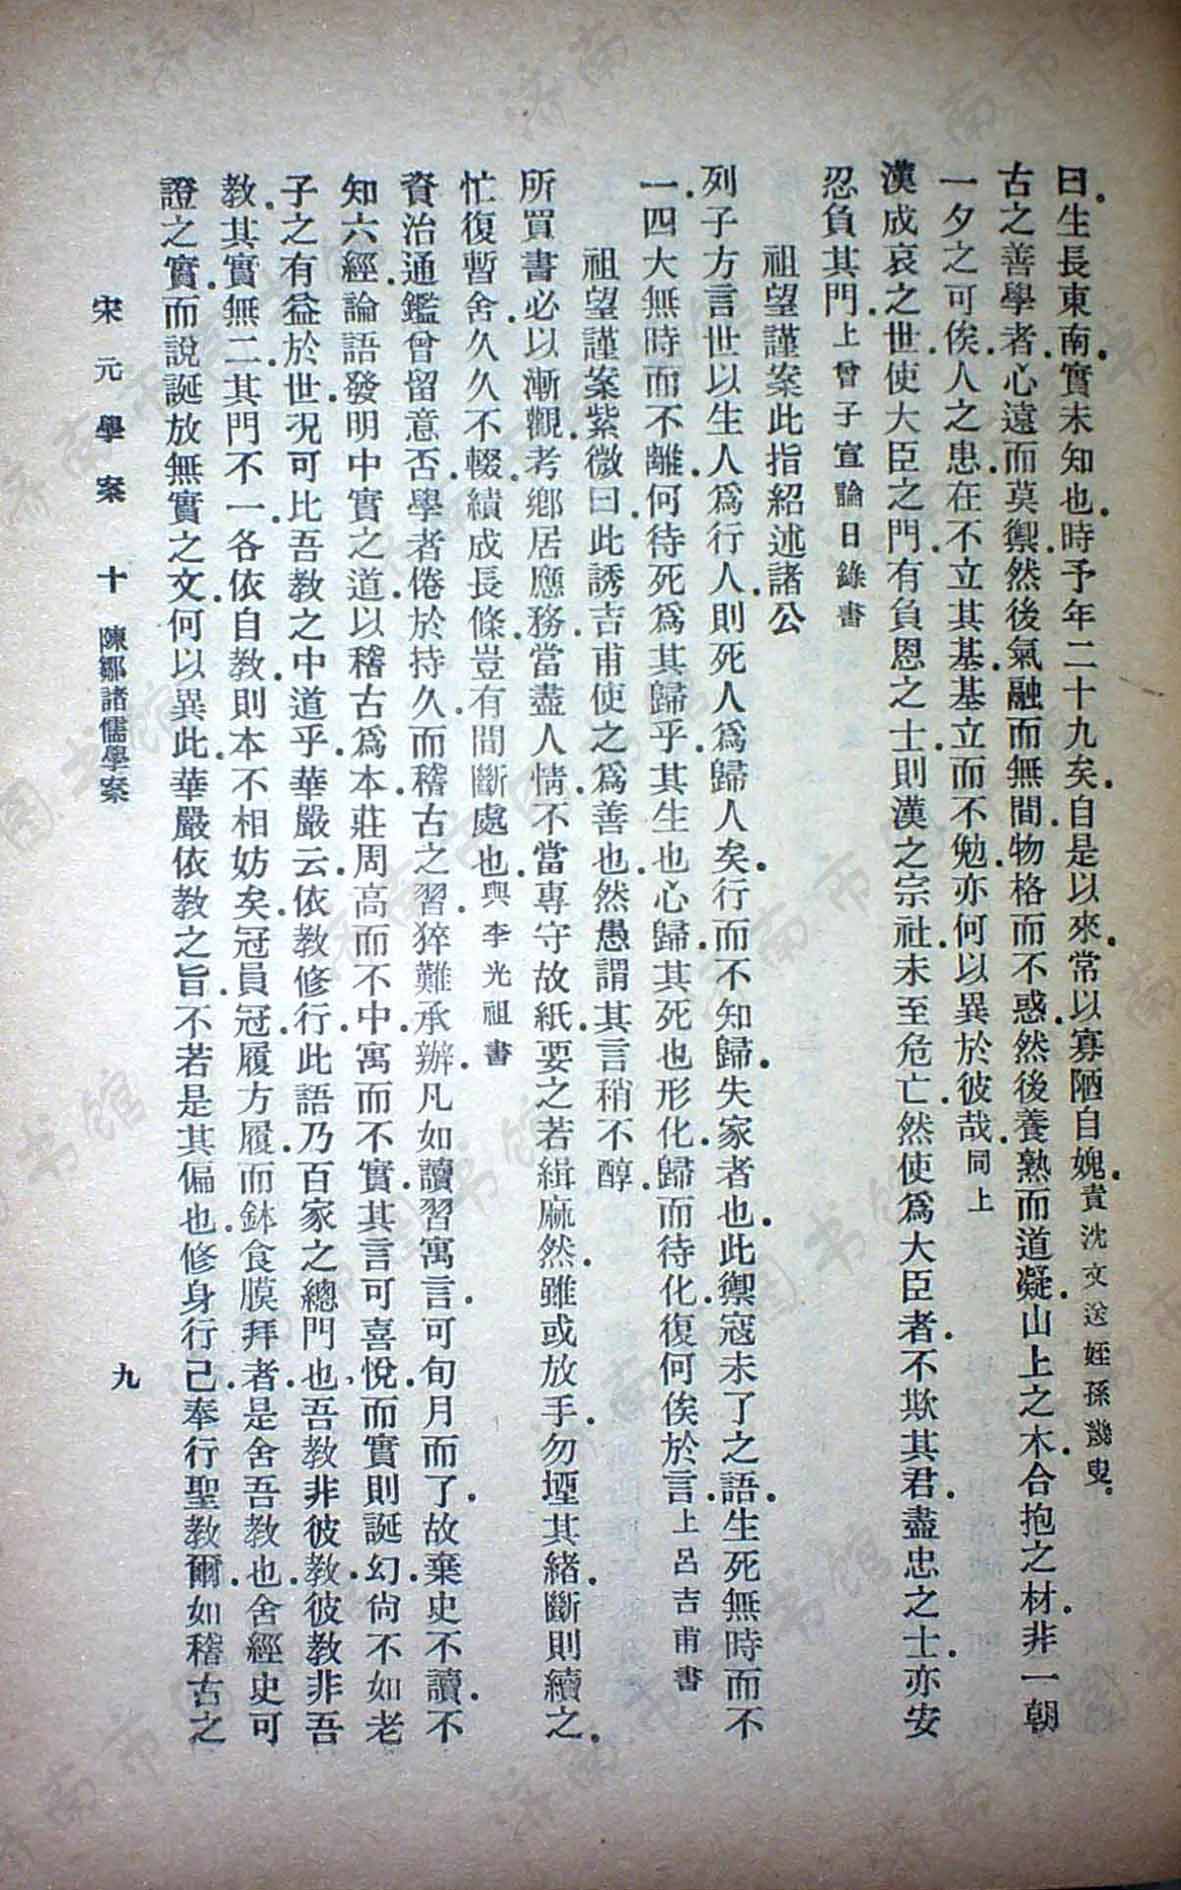 曰。生長東南。實未知也。時予年二十九矣。自是以來。常以寡陋自媿。責沈文送姪孫幾叟。
古之善學者。心遠而莫禦。然後氣融而無間。物格而不惑。然後養熟而道凝。山上之木。合抱之材。非一朝
一夕之可俟。人之患。在不立其基。基立而不勉。亦何以異於彼哉。同上
漢成哀之世。使大臣之門。有負恩之士。則漢之宗社。未至危亡。然使爲大臣者。不欺其君。盡忠之士。亦安
忍負其門。上曾子宣論日錄書
祖望謹案此指紹述諸公
列子方言世以生人爲行人。則死人爲歸人矣。行而不知歸。失家者也。此禦寇未了之語。生死無時而不
一。四大無時而不離。何待死爲其歸乎。其生也心歸。其死也形化。歸而待化。復何俟於言。上呂吉甫書
祖望謹案紫微曰。此誘吉甫使之爲善也。然愚謂其言稍不醇。
所買書必以漸觀。考鄉居應務。當盡人情。不當專守故紙。要之若緝麻然。雖或放手。勿堙其緒。斷則續之。
忙復暫舍。久久不輟。績成長條。豈有間斷處也。與李光祖書
資治通鑑曾留意否。學者倦於持久。而稽古之習。猝難承辦。凡如讀習寓言。可旬月而了。故棄史不讀。不
知六經論語。發明中實之道。以稽古爲本。莊周高而不中。寓而不實。其言可喜悅。而實則誕幻。尙不如老
子之有益於世。況可比吾教之中道乎。華嚴云。依教修行。此語乃百家之總門也。吾教非彼教。彼教非吾
教。其實無二。其門不一。各依自教。則本不相妨矣。冠員冠。履方履。而鉢食膜拜者。是舍吾教也。舍經史可
證之實。而說誕放無實之文。何以異此。華嚴依教之旨。不若是其偏也。修身行己。奉行聖教爾。如稽古之
宋元學案 十 陳鄒諸儒學案 九